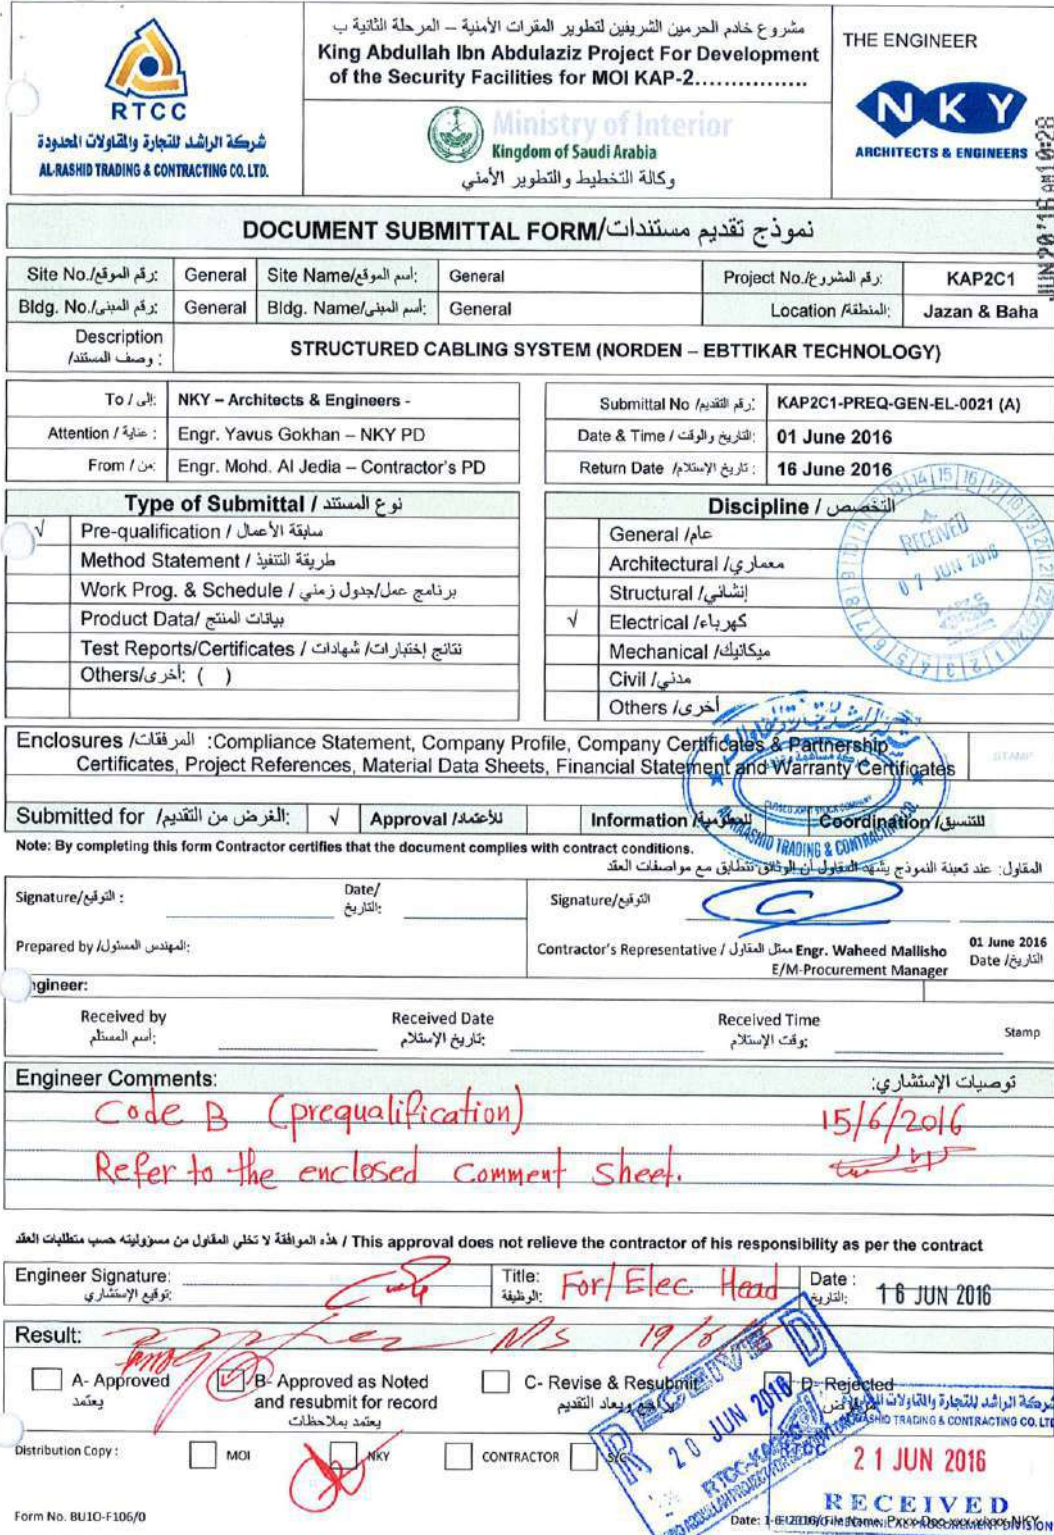 RTCC
شركة الراشد للتجارة والمقاولات المحدودة
AL-RASHID TRADING & CONTRACTING CO. LTD.
مشروع خادم الحرمين الشريفين لتطوير المقرات الأمنية – المرحلة الثانية ب
King Abdullah Ibn Abdulaziz Project For Development
of the Security Facilities for MOI KAP-2................
Ministry of Interior
Kingdom of Saudi Arabia
وكالة التخطيط والتطوير الأمني
THE ENGINEER
NKY
ARCHITECTS & ENGINEERS
JUN 20 '16 AM 10:28
DOCUMENT SUBMITTAL FORM/نموذج تقديم مستندات
Site No./رقم الموقع: General Site Name/أسم الموقع: General Project No./رقم المشروع: KAP2C1
Bldg. No./رقم المبنى: General Bldg. Name/أسم المبنى: General Location /المنطقة: Jazan & Baha
Description
/وصف المستند : STRUCTURED CABLING SYSTEM (NORDEN – EBTTIKAR TECHNOLOGY)
To / إلى: NKY – Architects & Engineers -
Attention / عناية : Engr. Yavus Gokhan – NKY PD
From / من: Engr. Mohd. Al Jedia – Contractor's PD
Submittal No /رقم التقديم: KAP2C1-PREQ-GEN-EL-0021 (A)
Date & Time / التاريخ والوقت: 01 June 2016
Return Date /تاريخ الإستلام : 16 June 2016
Type of Submittal / نوع المستند
√ Pre-qualification / سابقة الأعمال
Method Statement / طريقة التنفيذ
Work Prog. & Schedule / برنامج عمل/جدول زمني
Product Data/ بيانات المنتج
Test Reports/Certificates / نتائج إختبارات/ شهادات
Others/أخرى: ( )
Discipline / التخصص
General /عام
Architectural /معماري
Structural /إنشائي
√ Electrical /كهرباء
Mechanical /ميكانيك
Civil /مدني
Others /أخرى
RECEIVED
07 JUN 2016
Enclosures /المرفقات :Compliance Statement, Company Profile, Company Certificates & Partnership
Certificates, Project References, Material Data Sheets, Financial Statement and Warranty Certificates
STAMP
CLOSED JOINT STOCK COMPANY
AL-RAASHID TRADING & CONTRACTING CO.
Submitted for /الغرض من التقديم: √ Approval /للأعتماد Information /للمعلومية Coordination /للتنسيق
Note: By completing this form Contractor certifies that the document complies with contract conditions.
المقاول: عند تعبئة النموذج يشهد المقاول أن الوثائق تتطابق مع مواصفات العقد
Signature/التوقيع : Date/
التاريخ:
Signature/التوقيع
Prepared by /المهندس المسئول:
Contractor's Representative / ممثل المقاول Engr. Waheed Mallisho
E/M-Procurement Manager
01 June 2016
Date /التاريخ
ngineer:
Received by
أسم المستلم:
Received Date
تاريخ الإستلام:
Received Time
وقت الإستلام:
Stamp
Engineer Comments: توصيات الإستشاري:
Code B (prequalification) 15/6/2016
Refer to the enclosed comment sheet.
هذه الموافقة لا تخلي المقاول من مسؤوليته حسب متطلبات العقد / This approval does not relieve the contractor of his responsibility as per the contract
Engineer Signature:
توقيع الإستشاري:
Title:
الوظيفة:
For/ Elec. Head
Date :
التاريخ:
16 JUN 2016
Result:
A- Approved
يعتمد
B- Approved as Noted
and resubmit for record
يعتمد بملاحظات
C- Revise & Resubmit
يراجع ويعاد التقديم
D- Rejected
مرفوض
RECEIVED
20 JUN 2016
شركة الراشد للتجارة والمقاولات
RTCC
21 JUN 2016
RECEIVED
Distribution Copy : MOI NKY CONTRACTOR S/C
Form No. BU1O-F106/0